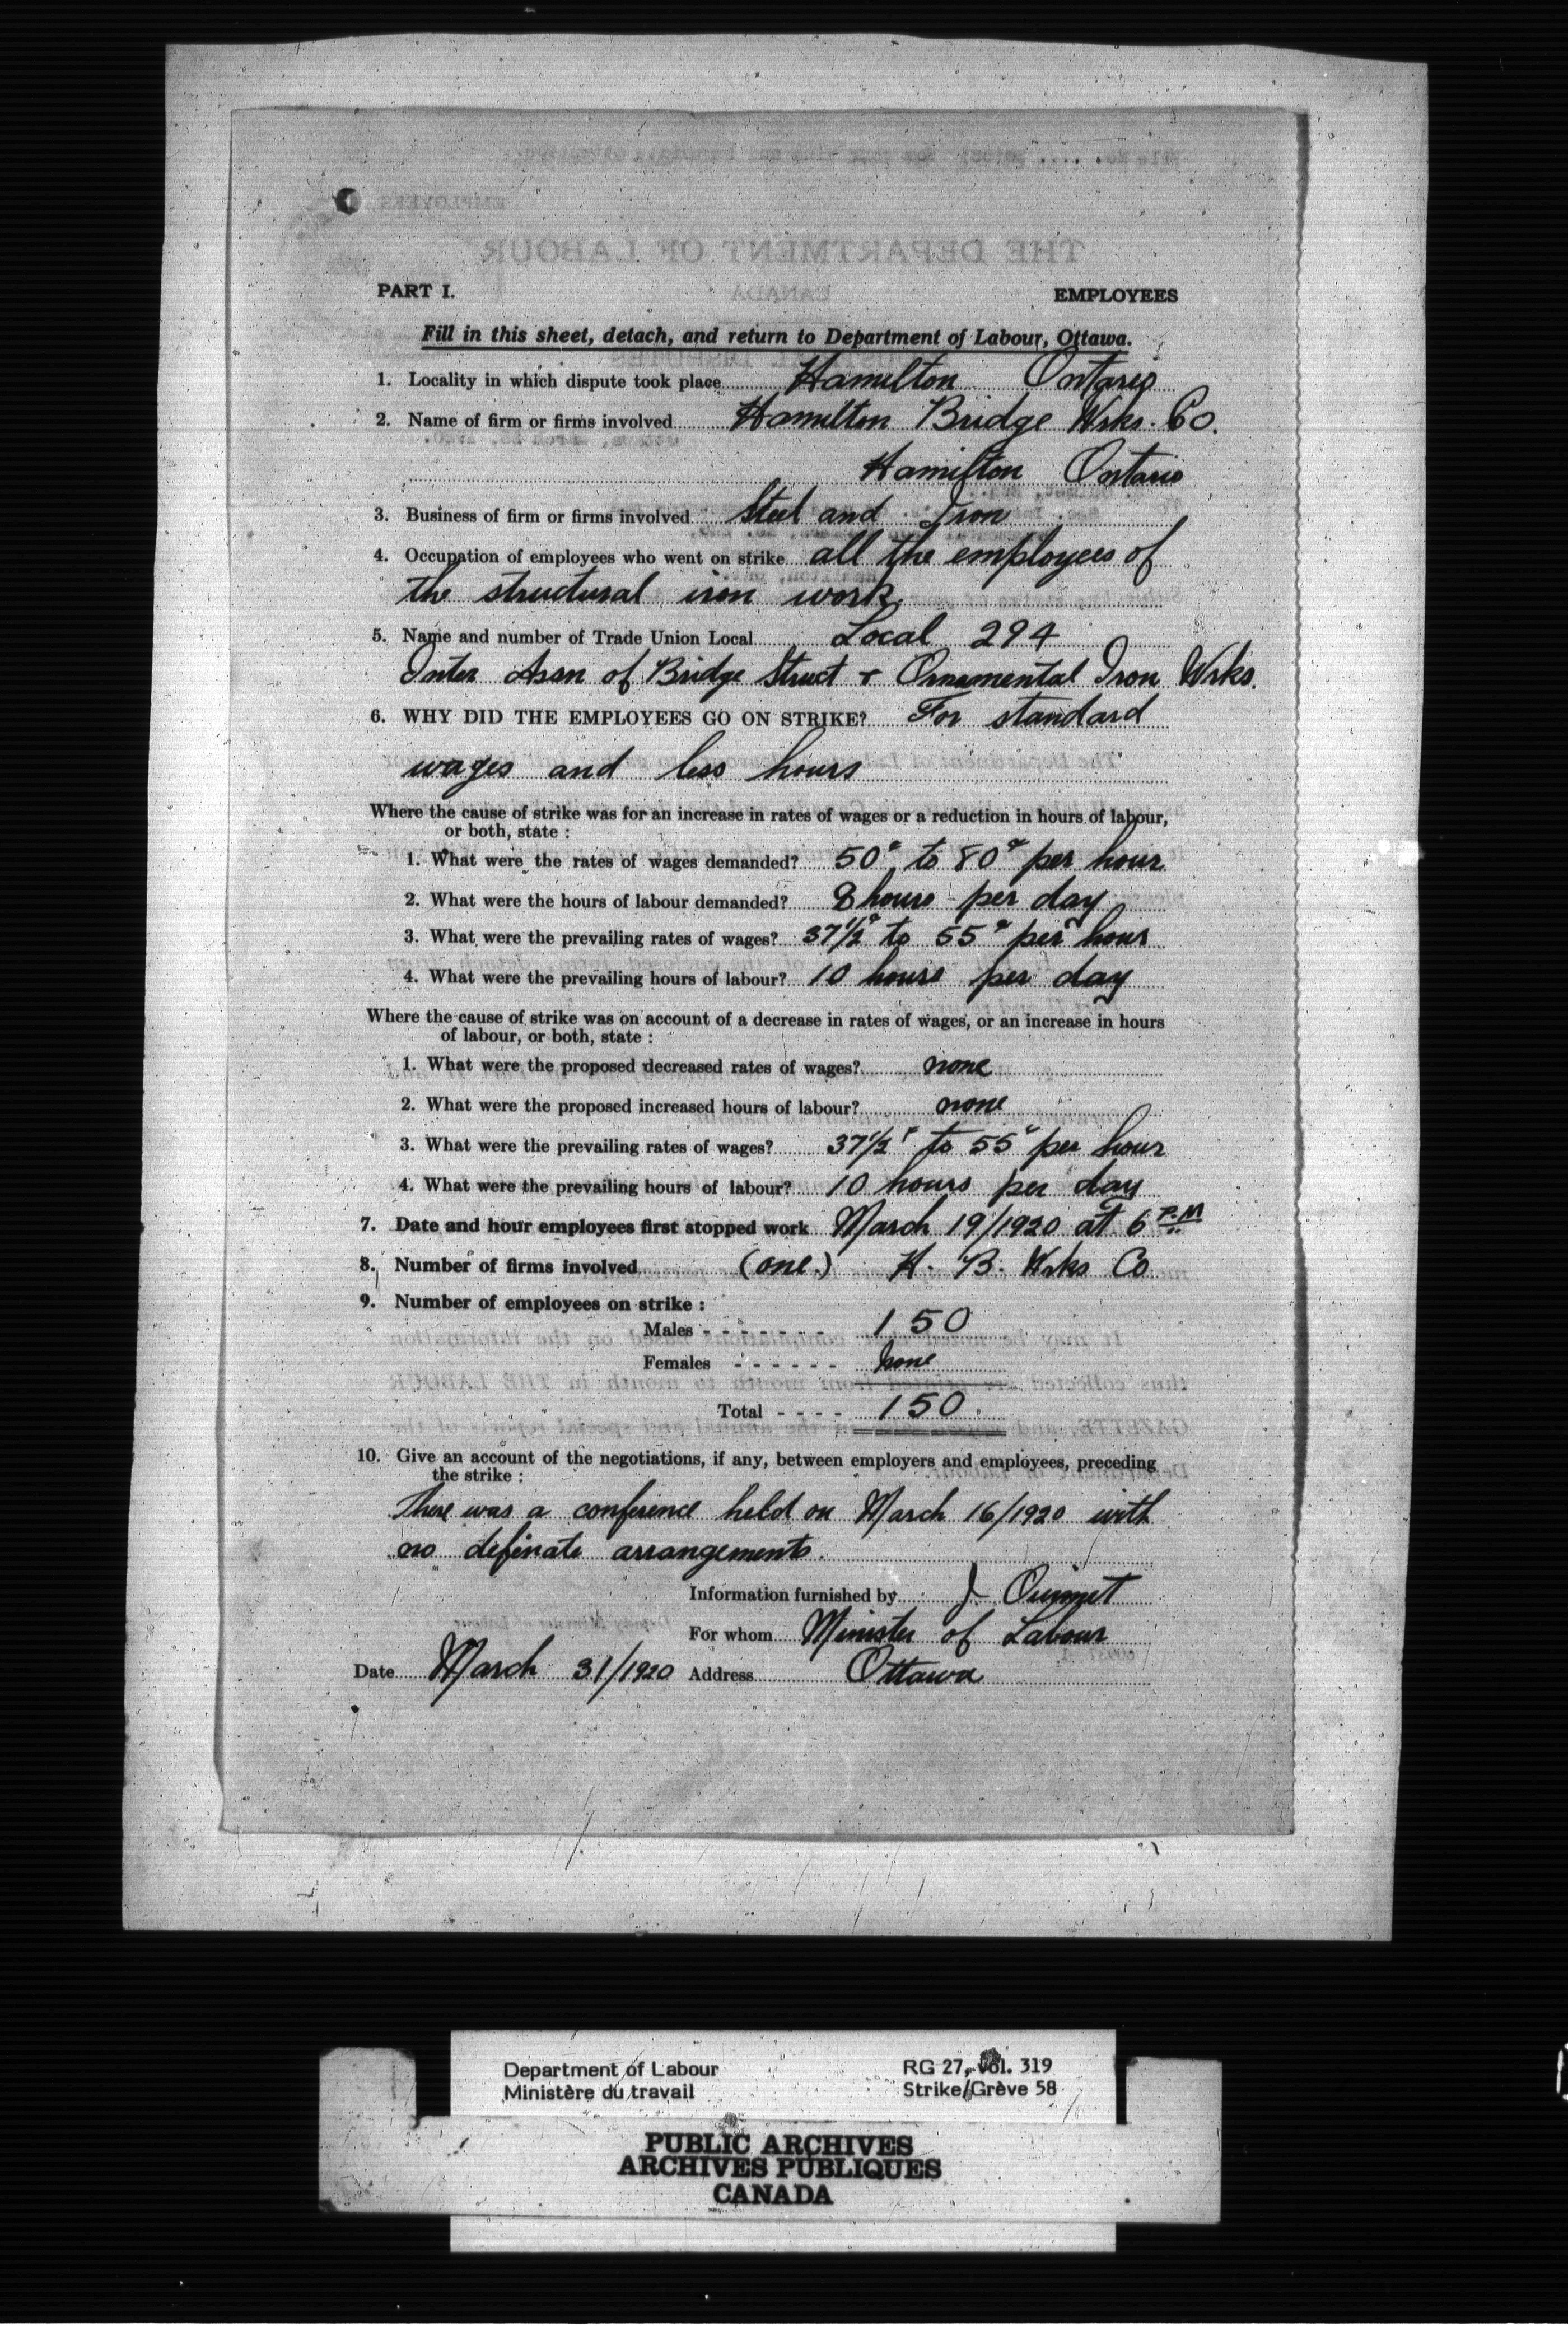 PART I.
EMPLOYEES
Fill in this sheet, detach, and return to Department of Labour, Ottawa.
1. Locality in which dispute took place Hamilton Ontario
2. Name of firm or firms involved Hamilton Bridge Wrks. Co.
Hamilton Ontario
3. Business of firm or firms involved Steel and Iron
4. Occupation of employees who went on strike all the employees of
the structural iron work
5. Name and number of Trade Union Local Local 294
Inter Assn of Bridge Struct + Ornamental Iron Wrks.
6. WHY DID THE EMPLOYEES GO ON STRIKE? For standard
wages and less hours
Where the cause of strike was for an increase in rates of wages or a reduction in hours of labour,
or both, state :
1. What were the rates of wages demanded? 50¢ to 80¢ per hour
2. What were the hours of labour demanded? 8 hours per day
3. What were the prevailing rates of wages? 37½¢ to 55¢ per hour
4. What were the prevailing hours of labour? 10 hours per day
Where the cause of strike was on account of a decrease in rates of wages, or an increase in hours
of labour, or both, state :
1. What were the proposed decreased rates of wages? none
2. What were the proposed increased hours of labour? none
3. What were the prevailing rates of wages? 37½¢ to 55¢ per hour
4. What were the prevailing hours of labour? 10 hours per day
7. Date and hour employees first stopped work March 19/1920 at 6 P.M
8. Number of firms involved (one.) H. B. Wrks Co
9. Number of employees on strike :
Males - - - - - - - 150
Females - - - - - - none
Total - - - - 150
10. Give an account of the negotiations, if any, between employers and employees, preceding
the strike :
There was a conference held on March 16/1920 with
no definate arrangements.
Information furnished by J. Ouimet
For whom Minister of Labour
Date March 31/1920 Address Ottawa
Department of Labour
Ministère du travail
RG 27, vol. 319
Strike/Grève 58
PUBLIC ARCHIVES
ARCHIVES PUBLIQUES
CANADA